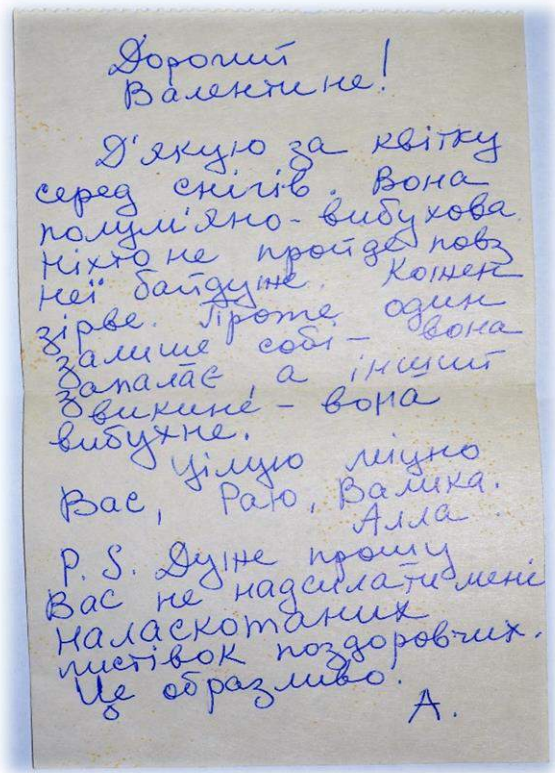 Дорогий
Валентине!
Д'якую за квітку
серед снігів. Вона
полум'яно-вибухова.
Ніхто не пройде повз
неї байдуже. Кожен
зірве. Проте один
залише собі – вона
запалає, а інший
викине – вона
вибухне.
Цілую міцно
Вас, Раю, Валика.
Алла.
P.S. Дуже прошу
Вас не надсилати мені
наласкотаних
листівок поздоровчих.
Це образливо.
А.